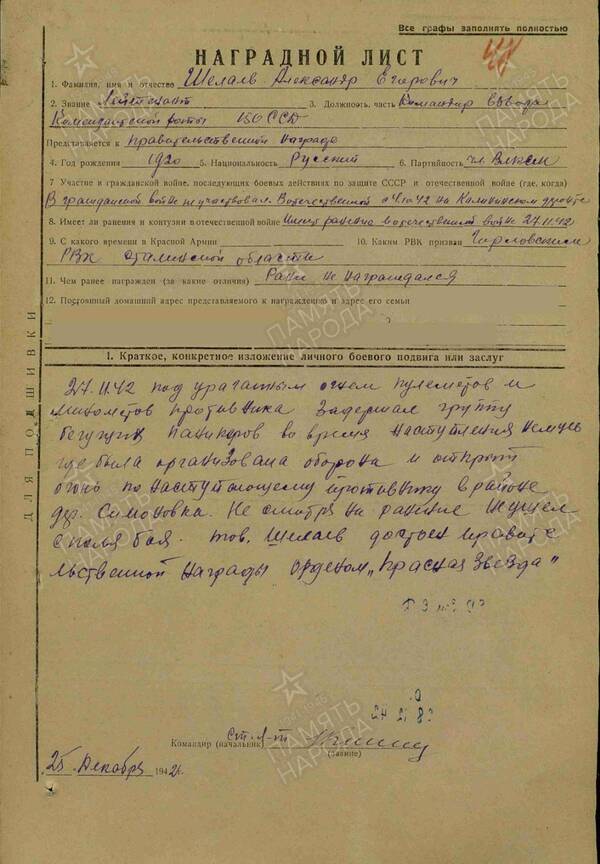 Все графы заполнять полностью
НАГРАДНОЙ ЛИСТ
1. Фамилия, имя и отчество Шелаев Александр Егорович
2. Звание Лейтенант 3. Должность, часть Командир взвода
Комендантской роты
Представляется к правительственной награде
4. Год рождения 1920 5. Национальность Русский 6. Партийность чл. ВЛКСМ
7. Участие в гражданской войне, последующих боевых действиях по защите СССР и отечественной войне (где, когда)
В гражданской войне не участвовал. В отечественной с на Калининском фронте
8. Имеет ли ранения и контузии в отечественной войне Имеет ранение в отечественной войне 27.11.42
9. С какого времени в Красной Армии 10. Каким РВК призван
РВК Сталинской области
11. Чем ранее награжден (за какие отличия) Ранее не награждался
12. Постоянный домашний адрес представляемого к награждению и адрес его семьи
I. Краткое, конкретное изложение личного боевого подвига или заслуг
27.11.42 под ураганным огнем пулеметов и
минометов противника задержал группу
бегущих паникеров во время наступления немцев
где была организована оборона и открыт
огонь по наступающему противнику в районе
дер. Симоновка. Не смотря на ранение не ушел
с поля боя. тов. Шелаев достоен правите
льственной награды орденом „Красная звезда"
Ст. л-т
Командир (начальник)
(звание)
25 Декабря 1942г.
ДЛЯ ПОДШИВКИ
ПАМЯТЬ
НАРОДА